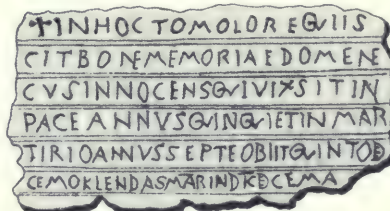 †INHOCTOMOLOREQVIIS
CITBONEMEMORIAEDOMENE
CVSINNOCENSQVIVIXSITIN
PACEANNVSQVINQVIETINMAR
TIRIOANNVSSEPTEOBIITQVINTOD
CEMOKLENDASMARINDKDCEMA